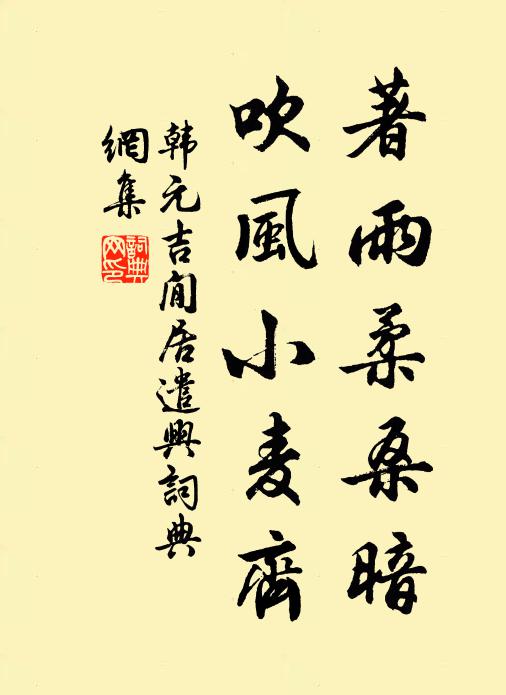 著雨柔桑暗
吹風小麦齊
韩元吉閒居遣興詞典
網集
詞典网印